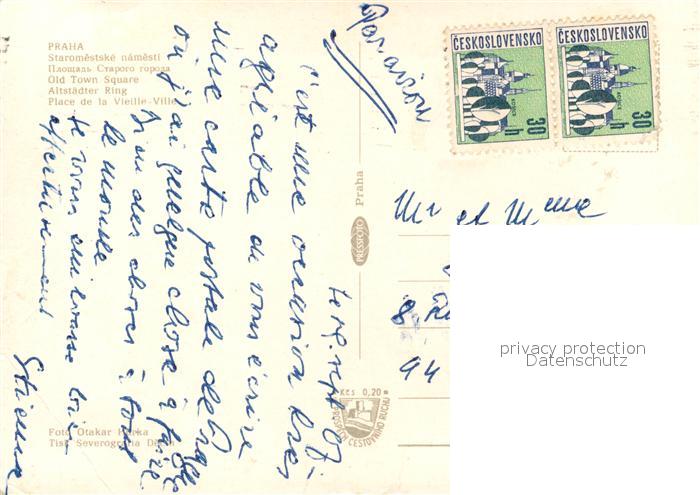 PRAHA
Staroměstské náměstí
Площадь Старого города
Old Town Square
Altstädter Ring
Place de la Vieille-Ville
Par avion
ČESKOSLOVENSKO
30 h
ČESKOSLOVENSKO
30 h
c'est une occasion très
agréable de vous écrire
une carte postale de
où j'ai quelque chose à faire
des choses à tout
le monde
Je vous embrasse bien
affectueusement
Etienne
Mr et Mme
8, R
94
privacy protection
Datenschutz
PRESSFOTO
Praha
Kčs 0,20
CESTOVNÍHO RUCHU
Foto Otakar
Tisk Severografia